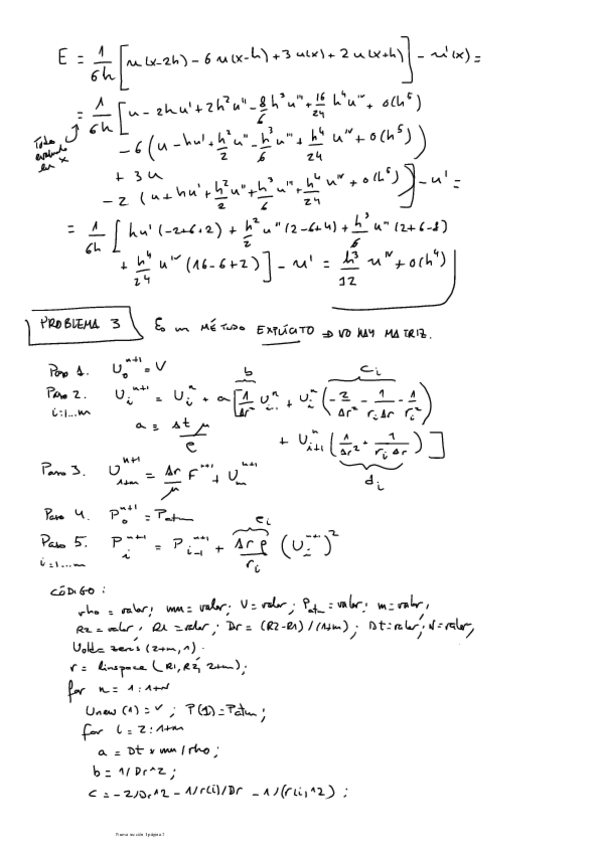 E = 1/6h [u(x-2h) - 6u(x-h) + 3u(x) + 2u(x+h)] - u'(x) =
= 1/6h [u - 2hu' + 2h²u'' - 8/6 h³u''' + 16/24 h⁴u^IV + O(h⁵)
Todo evaluado en x
-6 (u - hu' + h²/2 u'' - h³/6 u''' + h⁴/24 u^IV + O(h⁵))
+ 3u
-2 (u + hu' + h²/2 u'' + h³/6 u''' + h⁴/24 u^IV + O(h⁵)] - u' =
= 1/6h [hu' (-2+6+2) + h²/2 u'' (2-6+4) + h³/6 u''' (2+6-8)
+ h⁴/24 u^IV (16-6+2)] - u' = h³/12 u^IV + O(h⁴)
PROBLEMA 3 Es un MÉTODO EXPLÍCITO ⇒ NO HAY MATRIZ.
Paso 1. U_0^{n+1} = V
Paso 2. U_i^{n+1} = U_i^n + a [1/Δr² U_{i-1}^n + U_i^n (-2/Δr² - 1/(r_i Δr) - 1/r_i²)
b
c_i
i=1...m
a = Δt μ/ρ
+ U_{i+1}^n (1/Δr² + 1/(r_i Δr))]
d_i
Paso 3. U_{1+m}^{n+1} = Δr/μ F^{n+1} + U_m^{n+1}
Paso 4. P_0^{n+1} = P_atm
Paso 5. P_i^{n+1} = P_{i-1}^{n+1} + Δr ρ/r_i (U_i^{n+1})²
e_i
i=1...m
CÓDIGO:
rho = valor; mu = valor; V = valor; Patm = valor; m = valor;
R2 = valor; R1 = valor; Dr = (R2-R1)/(1+m); Dt = valor; N = valor;
Uold = zeros(2+m,1).
r = linspace(R1,R2,2+m);
for n = 1:1+N
Unew(1) = V; P(1) = Patm;
for i = 2:1+m
a = Dt*mu/rho;
b = 1/Dr^2;
c = -2/Dr^2 - 1/r(i)/Dr - 1/(r(i)^2);